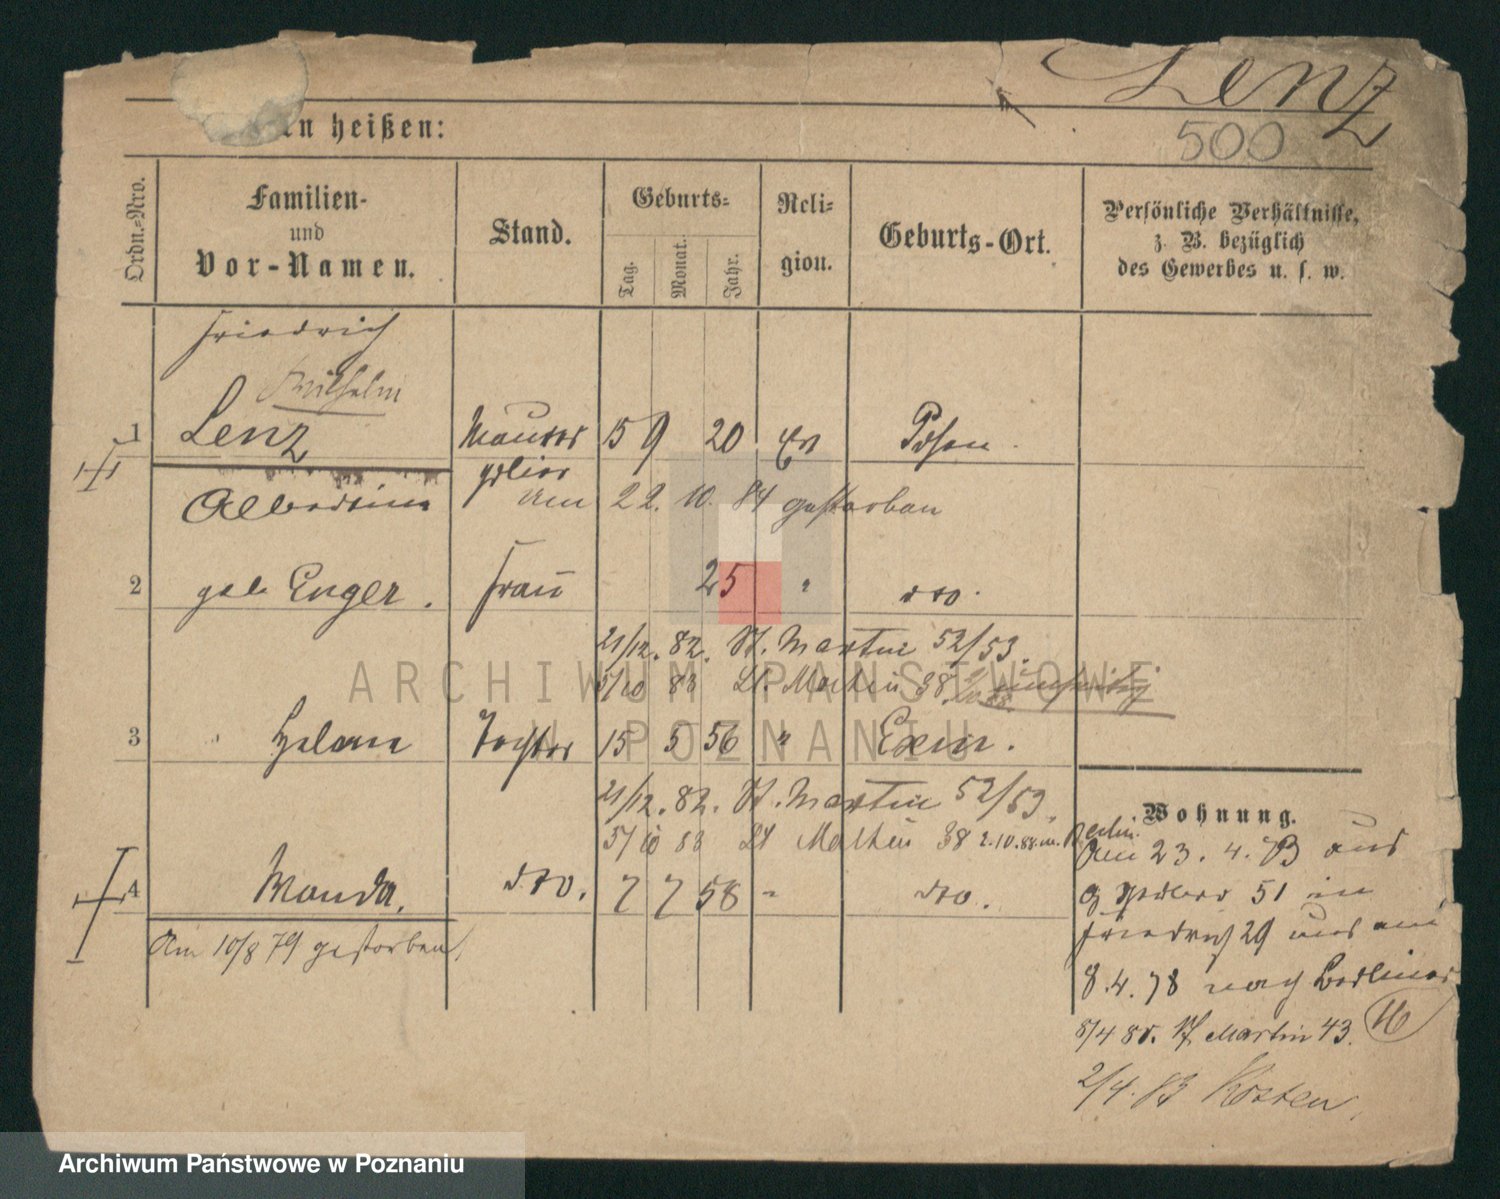 Lenz
en heißen:
500
Ordn.-Nro.
Familien-
und
Vor-Namen.
Stand.
Geburts-
Tag.
Monat.
Jahr.
Reli-
gion.
Geburts-Ort.
Persönliche Verhältnisse,
z. B. bezüglich
des Gewerbes u. s. w.
Friedrich
Wilhelm
1 Lenz Maurer 15 9 20 Ev Posen.
gestorben am 22. 10. 84
Albertine
2 geb Enger. Frau 25 " dto.
21/12. 82. St. Martin 52/53.
5/10 83 St. Martin 38.
3 Helene Tochter 15 5 56 " Exin.
21/12. 82. St. Martin 52/53.
5/10 83 St Martin 38 2.10.88. n. Berlin.
4 Wanda. dto. 7 7 58 " dto.
Am 10/8 79 gestorben
Wohnung.
Am 23. 4. 73 aus
51 in
Friedrich 29 und am
8. 4. 78 nach Berliner
16
5/4 80. St Martin 43.
2/4. 83 Kosten.
ARCHIWUM PAŃSTWOWE
W POZNANIU
Archiwum Państwowe w Poznaniu